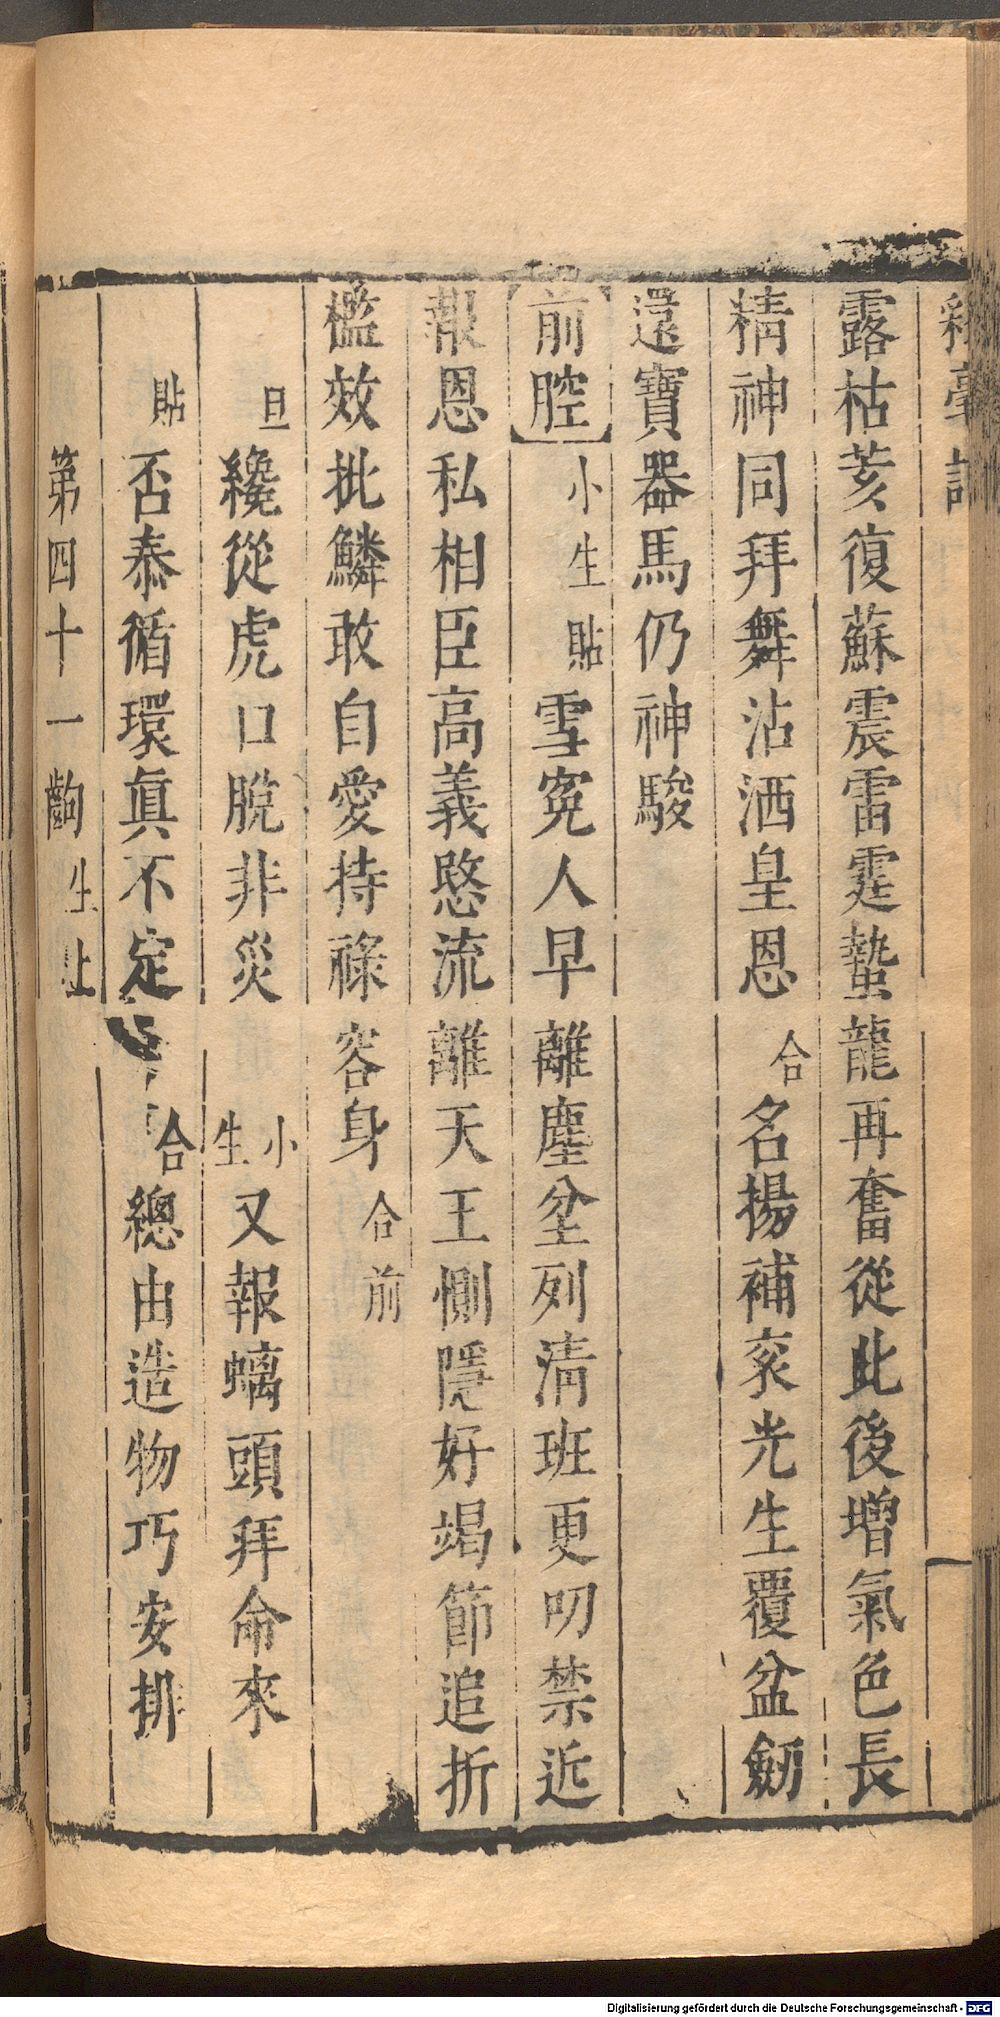 彩毫記
露枯荄復蘇震雷霆蟄龍再奮從此後增氣色長
精神同拜舞沾洒皇恩合名揚補袞光生覆盆劒
還寶器馬仍神駿
【前腔】小生貼雪寃人早離塵坌列清班更叨禁近
報恩私相臣高義愍流離天王惻隱好竭節追折
檻效批鱗敢自愛持祿容身合前
旦纔從虎口脫非災小生又報螭頭拜命來
貼否泰循環眞不定合總由造物巧安排
第四十一齣生上
Digitalisierung gefördert durch die Deutsche Forschungsgemeinschaft - DFG